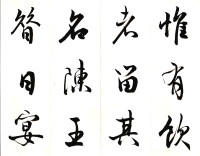 惟有饮
者留其
名陳王
昔日宴